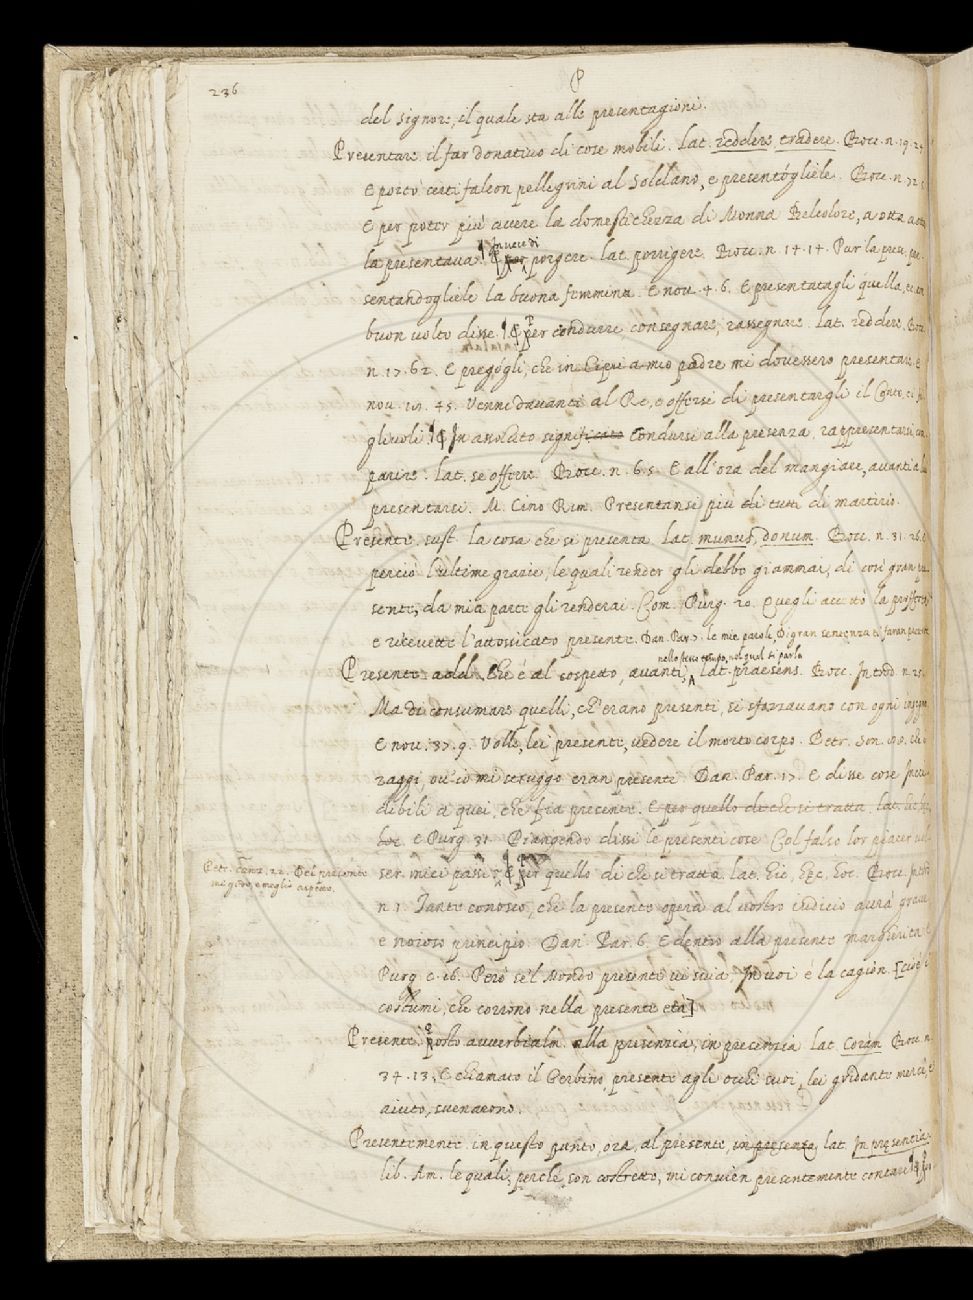 236
P
del signore, il quale sta alle presentagioni.
Presentare. il far donativo di cose mobili. Lat. reddere, tradere. Bocc. n. 19. 25
E portò certi falcon pellegrini al Soldano, e presentógliele. Bocc. n. 72.
E per poter più avere la domestichezza di Monna Belcolore, a otta a otta
la presentava. ¶ In vece di porgere. lat. porrigere. Bocc. n. 14. 14. Pur la pre
sentandogliele la buona femmina. E nov. 4. 6. E presentatagli quella, con
buon volto disse. ¶ Per condurre, consegnare, rassegnare. lat. reddere. Bocc.
n. 17. 62. E pregógli, che in Cipri a mio padre mi dovessero presentare. E
nov. 45. Venne davanti al Re, e offerse di presentargli il Conte, e i
gliuoli. ¶ In assoluto significato condursi alla presenza, rappresentarsi, com
parire. lat. se offerre. Bocc. n. 65. E all'ora del mangiare, avanti a
presentarsi. M. Cino Rim. Presentansi più di tutti di martirio.
Presente. sust. la cosa che si presenta. Lat. munus, donum. Bocc. n. 31. 26. E
perciò l'ultime grazie, le quali render gli debbo giammai, di così gran pre
sente, da mia parte gli renderai. Com. Purg. 20. Quegli accettò la profferta
e ricevette l'attossicato presente. Dan. Par. 7. le mie parole, Di gran sentenza ti faran presente
nello stesso tempo, nel qual si parla
Presente. add. che è al cospetto, avanti, lat. praesens. Bocc. Introd. n. 25.
Ma di consumare quelli, ch'erano presenti, si sforzavano con ogni ingegno
E nov. 37. 9. Volle, lei presente, vedere il morto corpo. Petr. Son.
raggi ov'io mi struggo eran presenti. Dan. Par. 17. E disse cose Incre
dibili a quei, che fia presente. E per quello di che si tratta. lat.
hoc. e Purg. 31. Piangendo dissi le presenti cose Col falso lor piacer vol
Petr. Canz. 22. Del presente
mi godo, e meglio aspetto.
ser miei passi. ¶ Per quello di che si tratta. lat. hic, hęc, hoc. Bocc. Introd.
n. 1. Tante conosco, che la presente opera al vostro iudicio avrà grave
e noioso principio. Dan. Par. 6. E dentro alla presente margherita
Purg. c. 16. Però se'l Mondo presente vi svia In voi è la cagion. [cioè i
costumi, che corrono nella presente età]
Presente. posto avverbialm. alla presenza, in presenzia. lat. Coram. Bocc. n.
34. 13. E chiamato il Gerbino, presente agli occhi suoi, lei gridante mercè, e
aiuto, svenarono.
Presentemente. in questo punto, ora, al presente, in presente, lat. In pręsentia.
lib. Am. le quali, perchè son costretto, mi convien presentemente contare